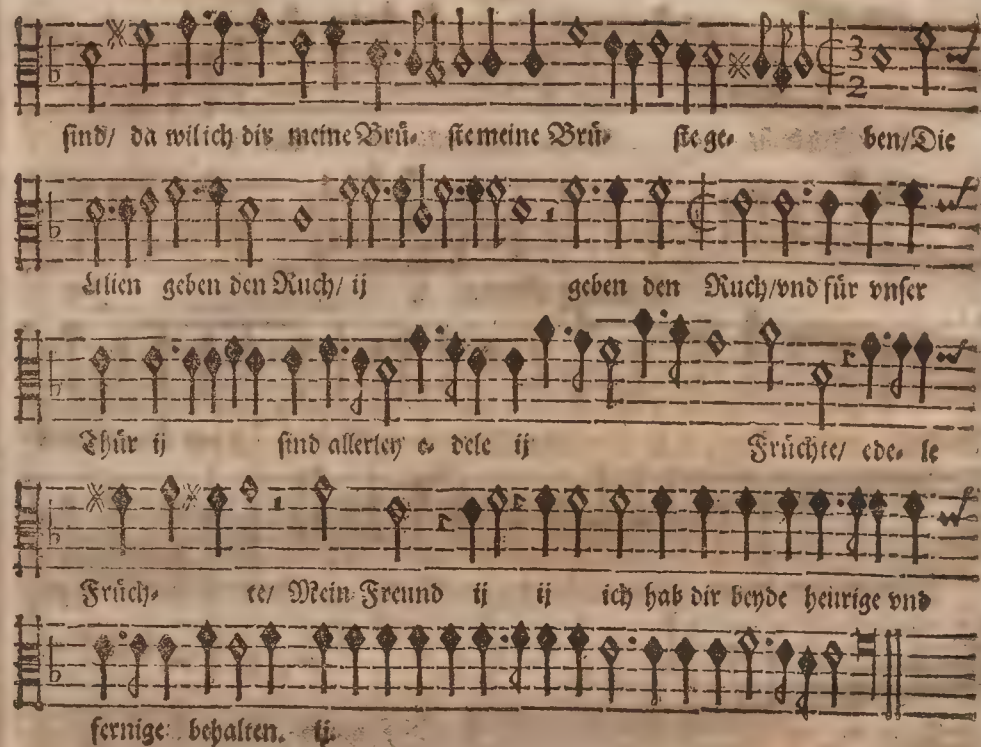 sind/ da wil ich dir meine Brü- ste meine Brü- ste ge- ben/ Die
Lilien geben den Ruch/ ij geben den Ruch/ vnd für vnser
Thür ij sind allerley e- dele ij Früchte/ ede- le
Früch- te/ Mein Freund ij ij ich hab dir beyde heurige vnd
fernige behalten. ij.